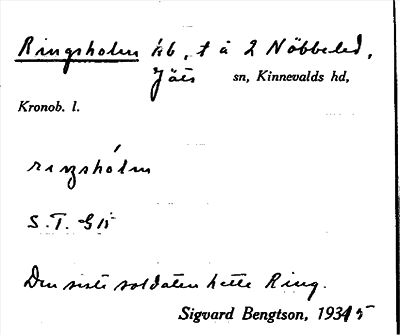 Ringsholm hb, t å 2 Nöbbeled,
Jäts sn, Kinnevalds hd,
Kronob. l.
ringshólm
S.T. G
Den siste soldaten hette Ring.
Sigvard Bengtson, 1935